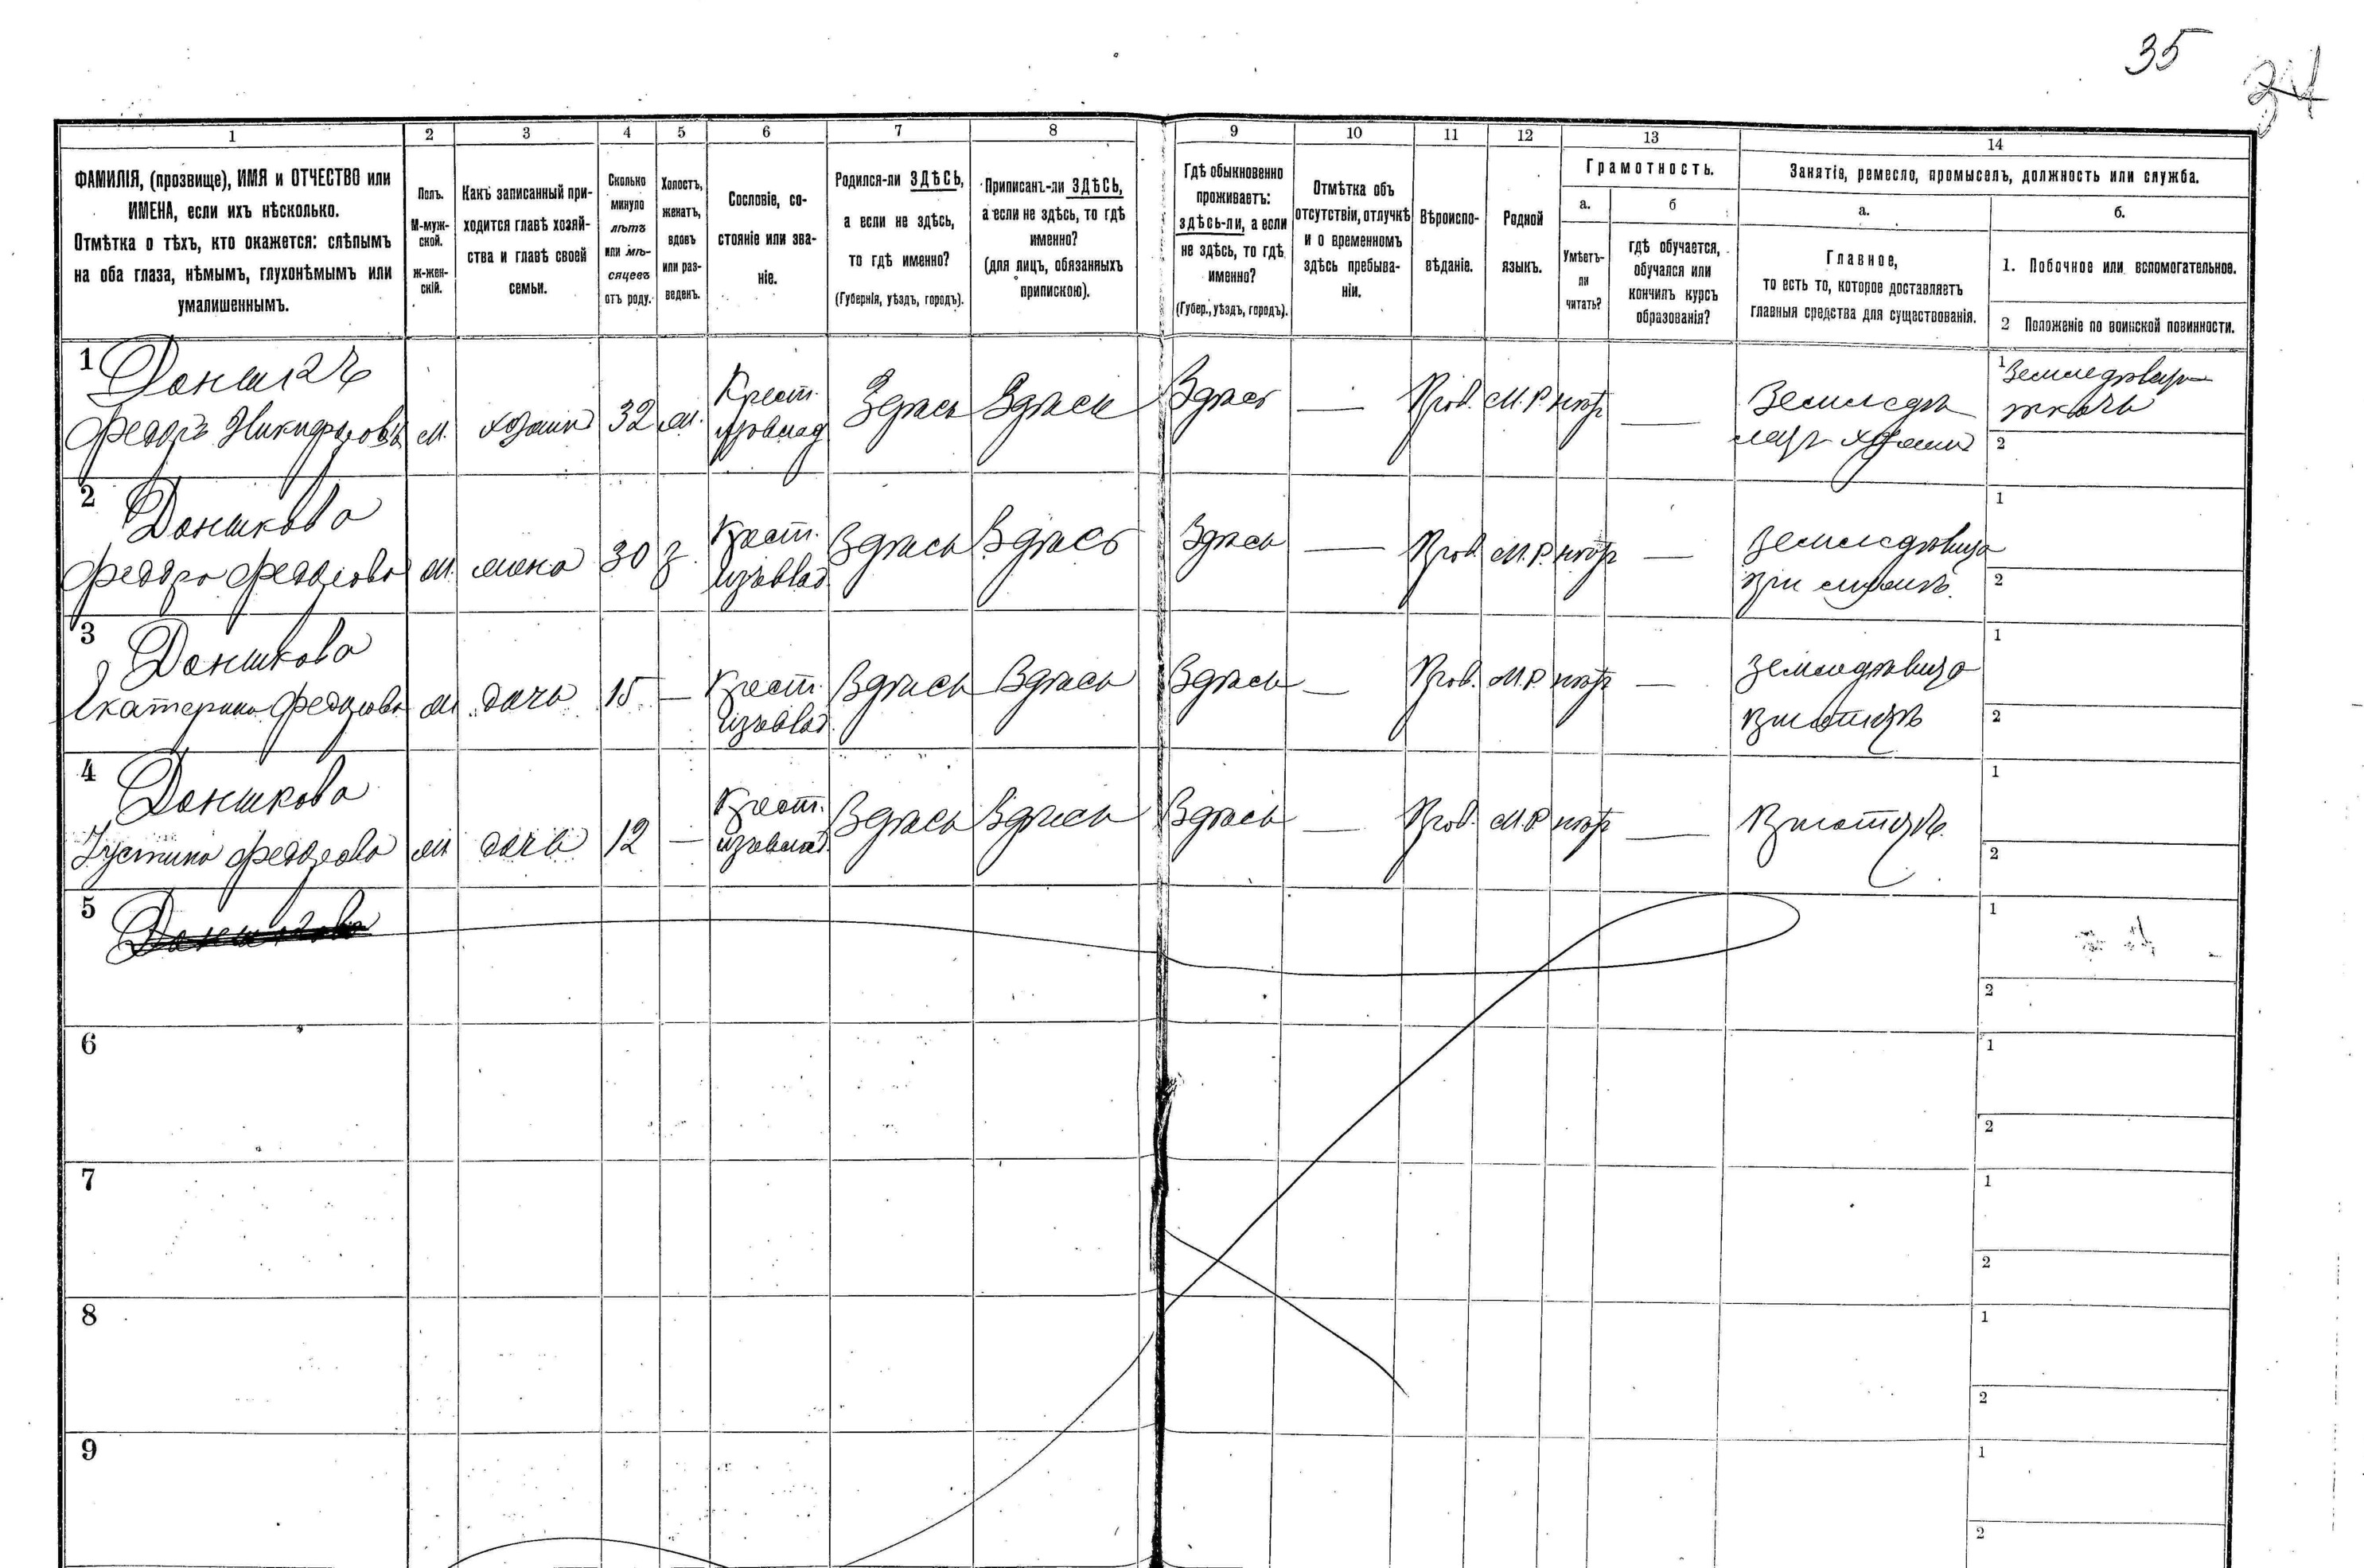 35
34
1
2
3
4
5
6
7
8
9
10
11
12
13
14
ФАМИЛІЯ, (прозвище), ИМЯ и ОТЧЕСТВО или
ИМЕНА, если ихъ нѣсколько.
Отмѣтка о тѣхъ, кто окажется: слѣпымъ
на оба глаза, нѣмымъ, глухонѣмымъ или
умалишеннымъ.
Полъ.
М-муж-
ской.
ж-жен-
скій.
Какъ записанный при-
ходится главѣ хозяй-
ства и главѣ своей
семьи.
Сколько
минуло
лѣтъ
или мѣ-
сяцевъ
отъ роду.
Холостъ,
женатъ,
вдовъ
или раз-
веденъ.
Сословіе, со-
стояніе или зва-
ніе.
Родился-ли ЗДѢСЬ,
а если не здѣсь,
то гдѣ именно?
(Губернія, уѣздъ, городъ).
Приписанъ-ли ЗДѢСЬ,
а если не здѣсь, то гдѣ
именно?
(для лицъ, обязанныхъ
припискою).
Гдѣ обыкновенно
проживаетъ:
здѣсь-ли, а если
не здѣсь, то гдѣ
именно?
(Губер., уѣздъ, городъ).
Отмѣтка объ
отсутствіи, отлучкѣ
и о временномъ
здѣсь пребыва-
ніи.
Вѣроиспо-
вѣданіе.
Родной
языкъ.
Грамотность.
а.
Умѣетъ-
ли
читать?
б
гдѣ обучается,
обучался или
кончилъ курсъ
образованія?
Занятіе, ремесло, промыселъ, должность или служба.
а.
Главное,
то есть то, которое доставляетъ
главныя средства для существованія.
б.
1. Побочное или вспомогательное.
2 Положеніе по воинской повинности.
1
Федоръ Никифоровъ
м.
хозяинъ
32
Крест.
Здѣсь
Здѣсь
Здѣсь
—
Прав.
М.Р.
нѣтъ
—
1
2
2
Доншкова
30
з.
Крест.
Здѣсь
Здѣсь
Здѣсь
—
Прав.
М.Р.
нѣтъ
—
1
2
3
Доншкова
Екатерина Федорова
дочь
15
—
Крест.
Здѣсь
Здѣсь
Здѣсь
—
Прав.
М.Р.
нѣтъ
—
1
2
4
Доншкова
Устина Федорова
дочь
12
—
Крест.
Здѣсь
Здѣсь
Здѣсь
—
Прав.
М.Р.
нѣтъ
—
1
2
5
1
2
6
1
2
7
1
2
8
1
2
9
1
2